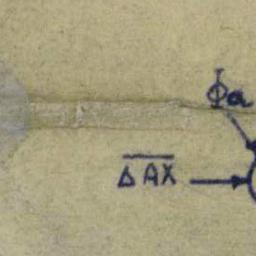 Φa
ΔAX